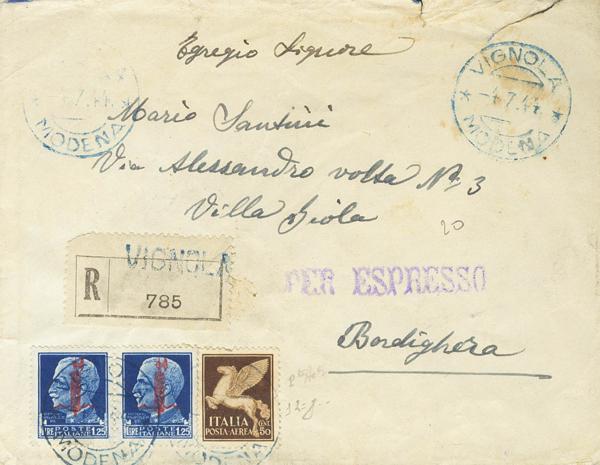 Egregio Signore
VIGNOLA
-4.7.44
* MODENA *
.7.44
* MODENA *
Mario Santini
Via Alessandro volta Nº 3
Villa Giola
20
VIGNOLA
R
785
PER ESPRESSO
Bordighera
LIRE POSTE ITALIANE 1.25
LIRE POSTE ITALIANE 1.25
ITALIA
POSTA-AEREA
CENT. 50
MODENA
MODENA